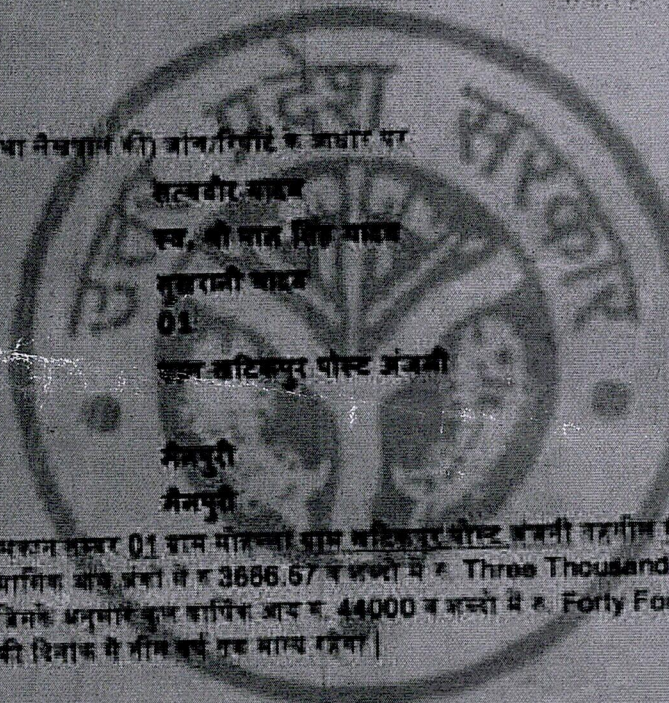 उत्तर प्रदेश सरकार
था लेखपाल की) जांच/रिपोर्ट के आधार पर
सत्यवीर यादव
स्व. श्री पाल सिंह यादव
यादव
01
ग्राम खटिकपुर पोस्ट अंजनी
मैनपुरी
मैनपुरी
मकान नम्बर 01 ग्राम मोहल्ला ग्राम खटिकपुर पोस्ट अंजनी तहसील
मासिक आय अंको में रु 3666.67 व शब्दो में रु. Three Thousand
जिनके अनुसार कुल वार्षिक आय रु. 44000 व शब्दो में रु. Forty Fo
की दिनांक से तीन वर्ष तक मान्य रहेगा|